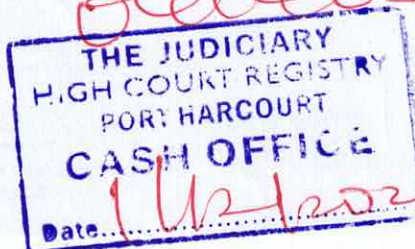 THE JUDICIARY
HIGH COURT REGISTRY
PORT HARCOURT
CASH OFFICE
Date